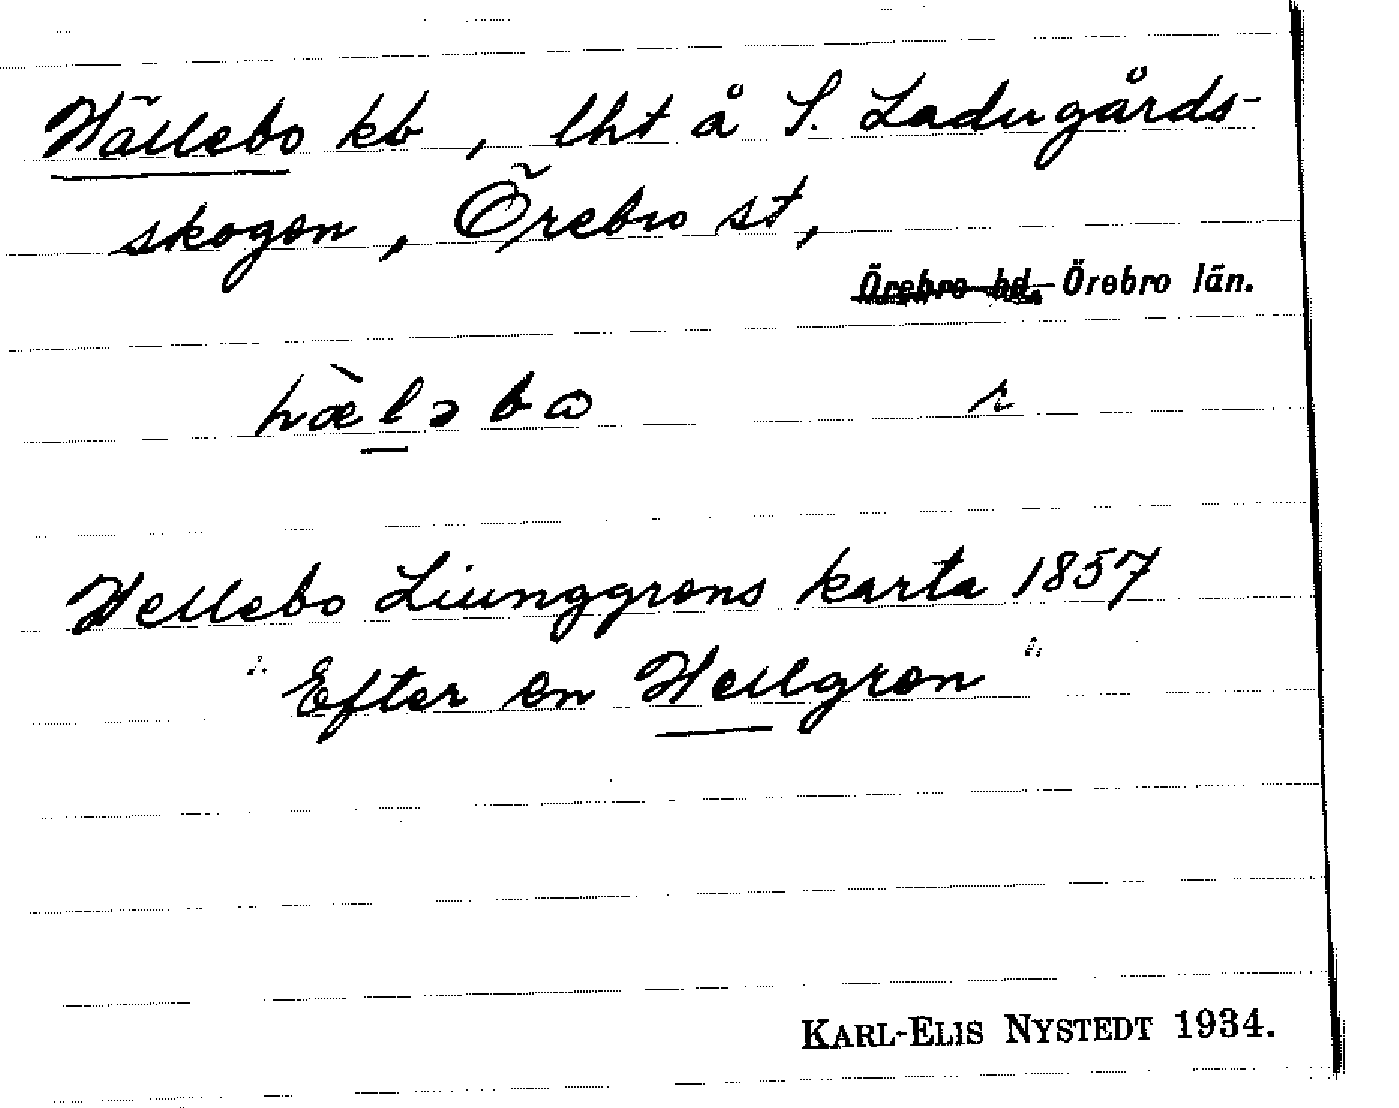 Hällebo kb, lht å S. Ladugårds-
skogen, Örebro st,
Örebro hd. Örebro län.
hæ̀ləbɷ
Hellebo Liunggrens karta 1857
"Efter en Hellgren"
KARL-ELIS NYSTEDT 1934.